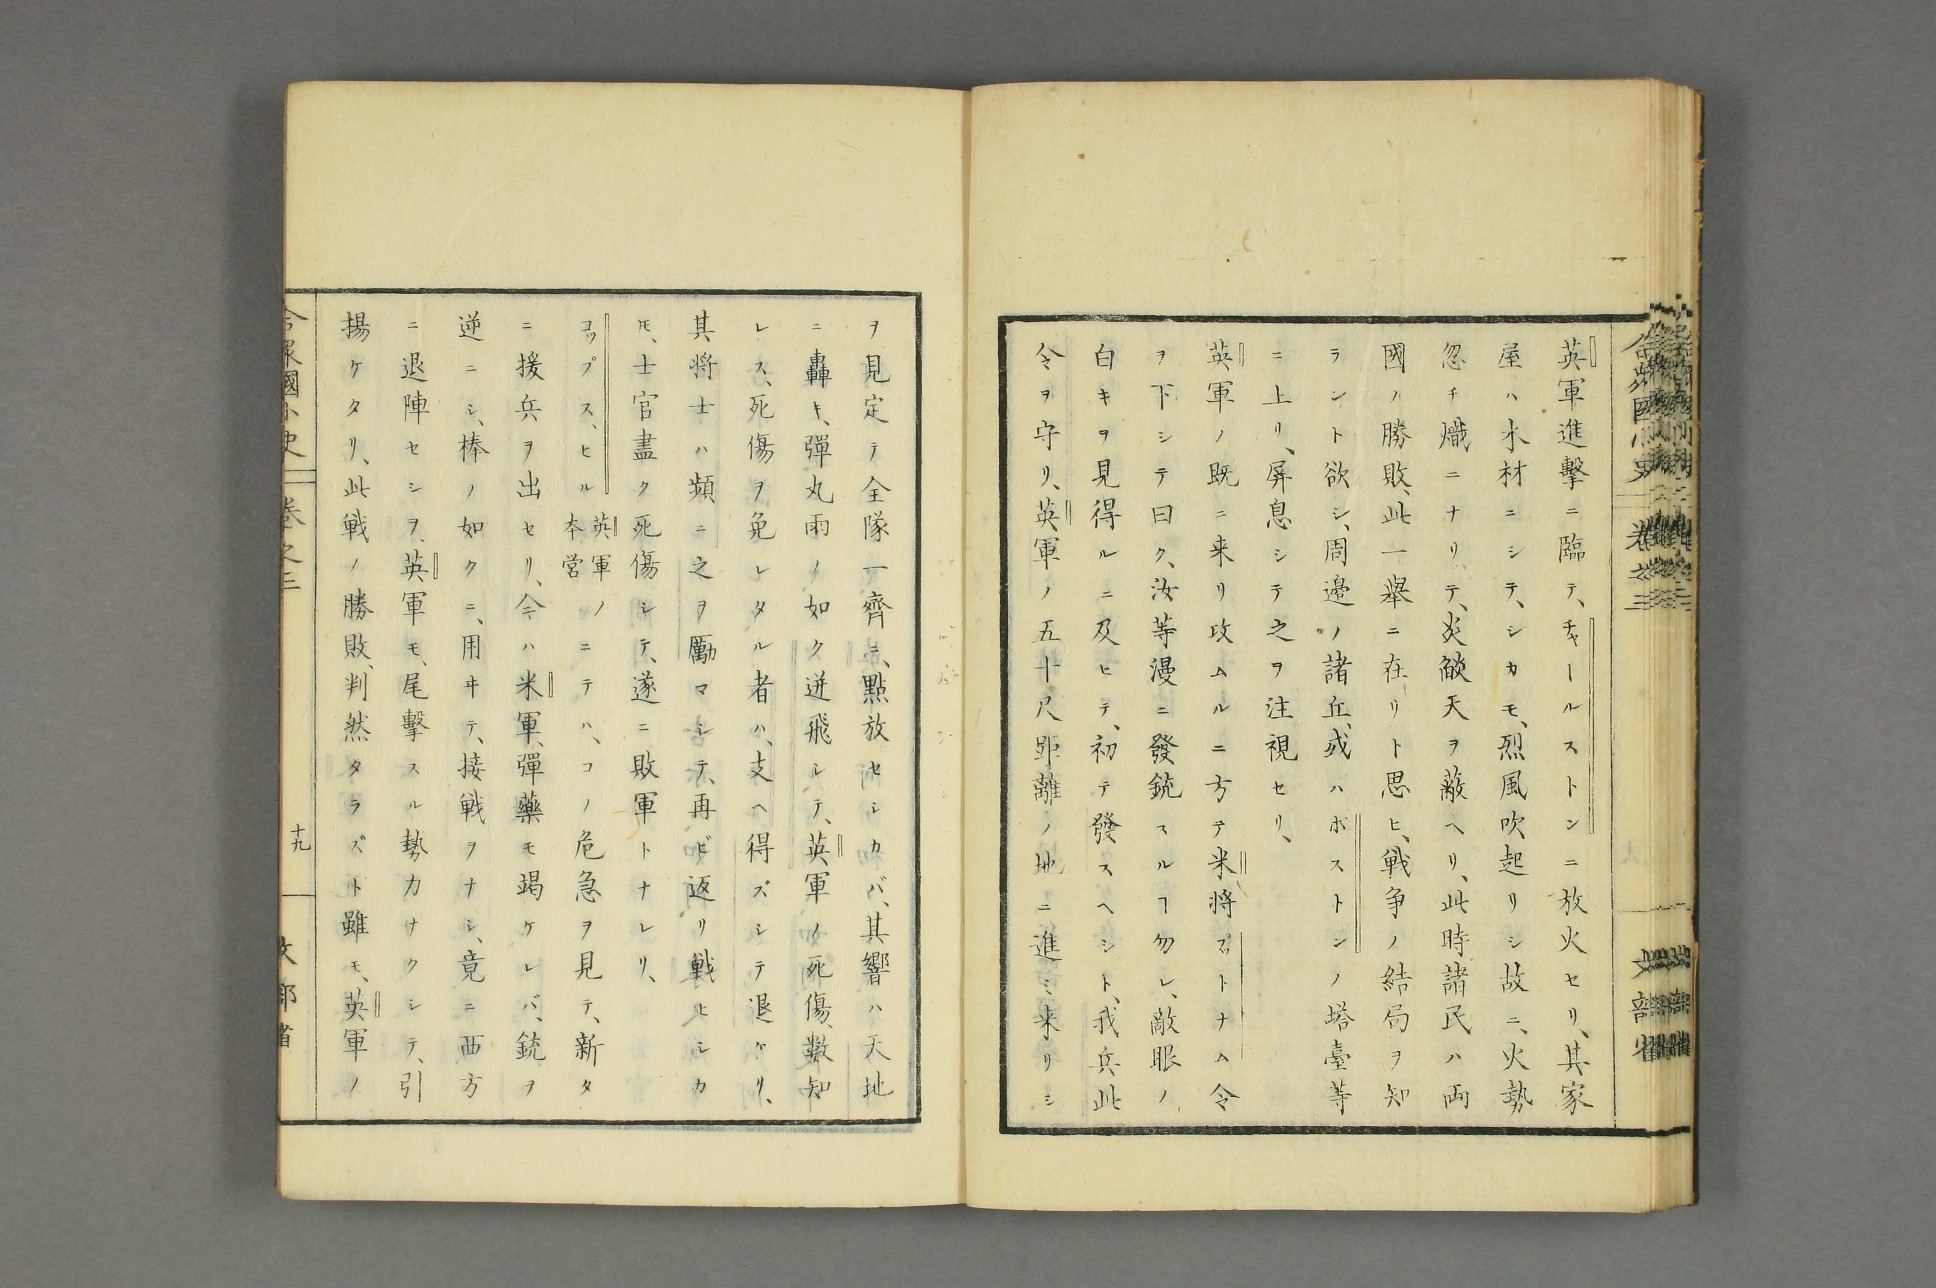 英軍進擊ニ臨テ、チャールストンニ放火セリ、其家
屋ハ木材ニシテ、シカモ、烈風吹起リシ故ニ、火勢
忽チ熾ニナリテ、炎𦦨天ヲ蔽ヘリ、此時諸民ハ両
國ノ勝敗、此一舉ニ在リト思ヒ、戦争ノ結局ヲ知
ラント欲シ、周邉ノ諸丘、或ハボストンノ塔臺等
ニ上リ、屏息シテ之ヲ注視セリ、
英軍ノ既ニ来リ攻ムルニ方テ米将プットナム令
ヲ下シテ曰ク、汝等漫ニ發銃スルヿ勿レ、敵眼ノ
白キヲ見得ルニ及ヒテ、初テ發スヘシト、我兵此
令ヲ守リ、英軍ノ五十尺距離ノ地ニ進ミ来リシ
ヲ見定テ全隊一齊ニ、點放セシカバ、其響ハ天地
ニ轟キ、彈丸雨ノ如ク迸飛シテ、英軍ノ死傷、數知
レス、死傷ヲ免レタル者ハ、支ヘ得ズシテ退ケリ、
其将士ハ頻ニ之ヲ勵マシテ、再ビ返リ戦ヒシカ
𪜈、士官盡ク死傷シテ、遂ニ敗軍トナレリ、
コップス、ヒル英軍ノ本営ニテハ、コノ危急ヲ見テ、新タ
ニ援兵ヲ出セリ、今ハ米軍、彈藥モ竭ケレバ、銃ヲ
逆ニシ、棒ノ如クニ、用ヰテ、接戦ヲナシ、竟ニ西方
ニ退陣セシヲ、英軍モ、尾擊スル勢力ナクシテ、引
揚ケタリ、此戦ノ勝敗、判然タラズト雖モ、英軍ノ
合衆國小史 卷之三
十九
文部省